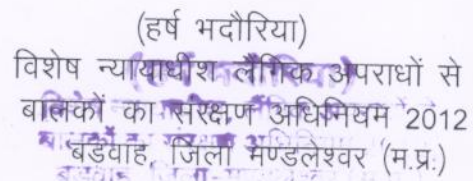 (हर्ष भदौरिया)
विशेष न्यायाधीश लैंगिक अपराधों से
बालकों का संरक्षण अधिनियम 2012
बडवाह, जिला मण्डलेश्वर (म.प्र.)